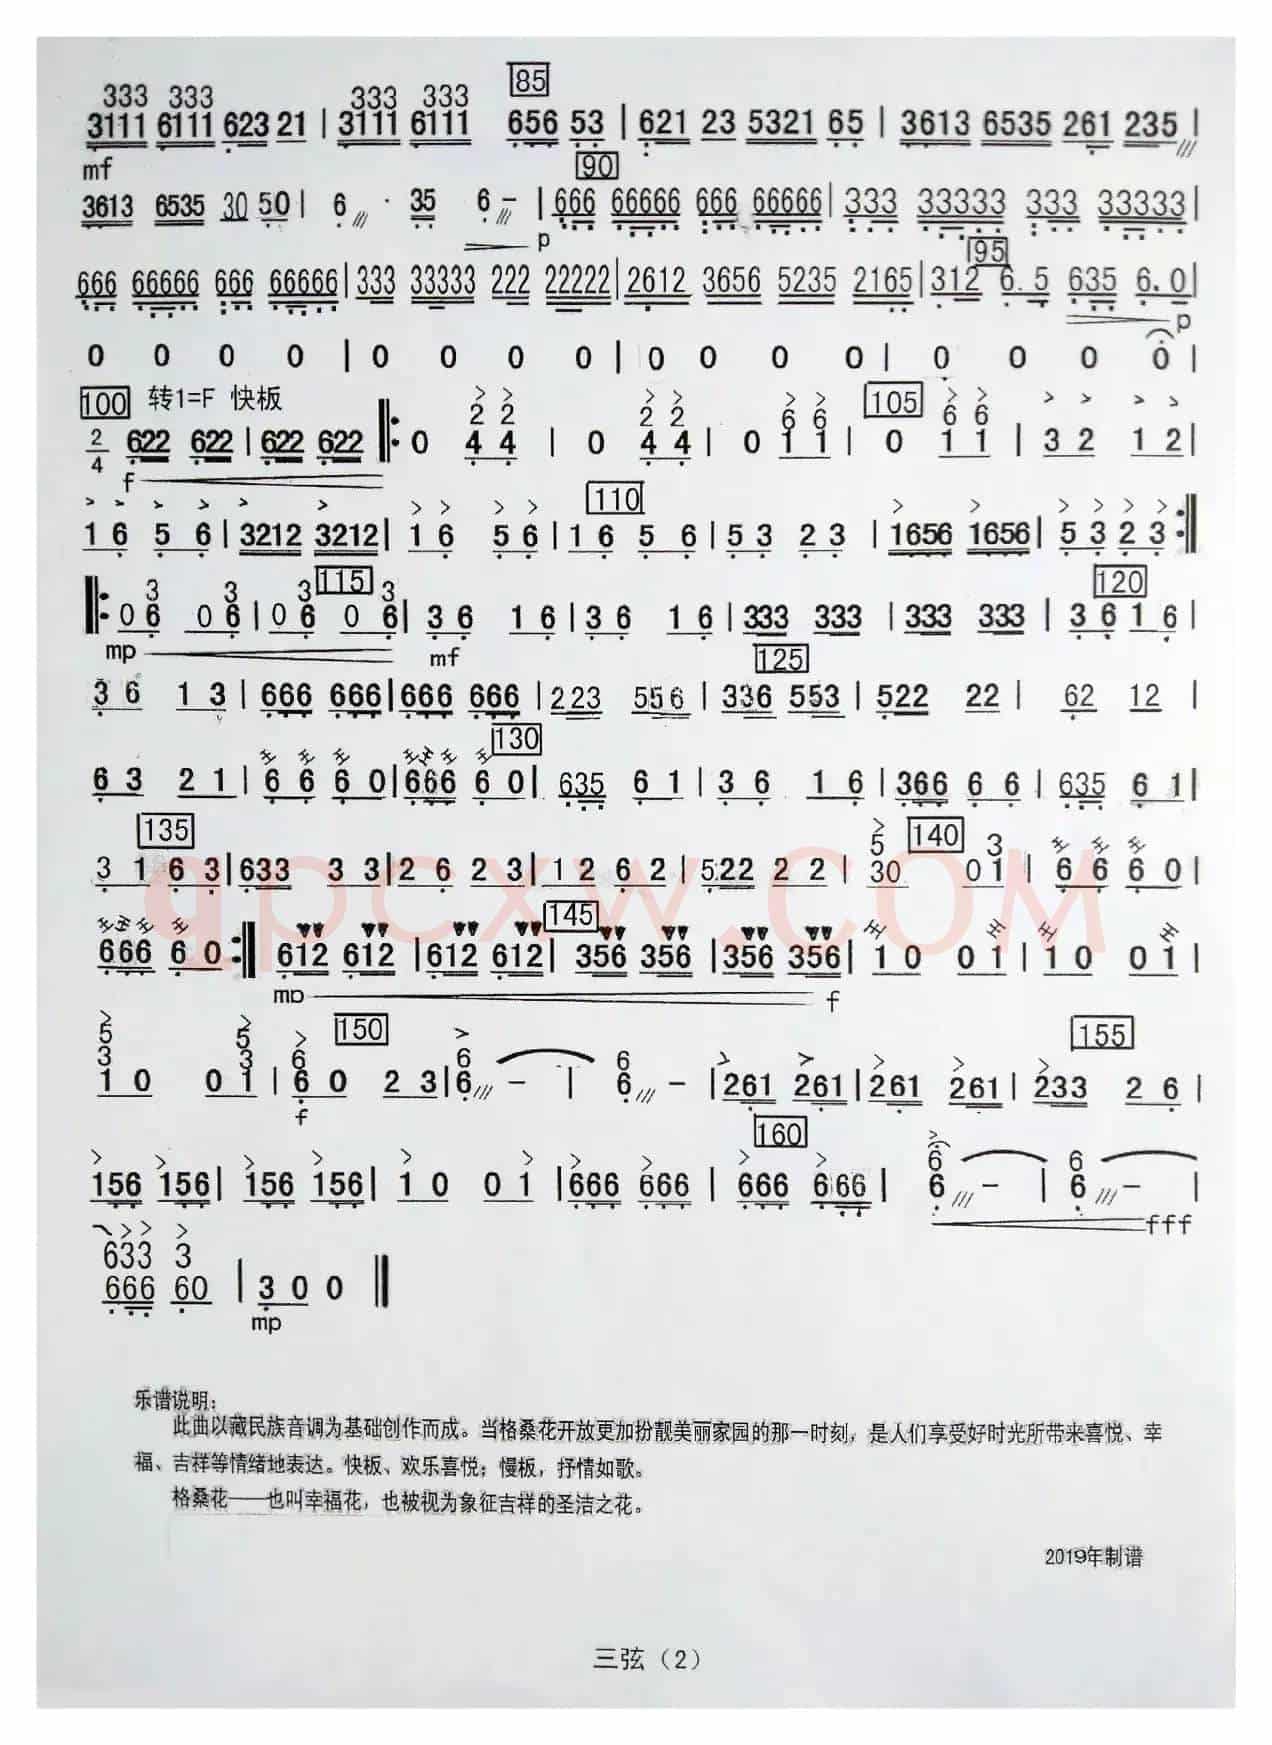 333 333 333 333 85
3111 6111 623 21 | 3111 6111 656 53 | 621 23 5321 65 | 3613 6535 261 235 |
mf 90
3613 6535 30 50 | 6 · 35 6 - | 666 66666 666 66666 | 333 33333 333 33333 |
p
95
666 66666 666 66666 | 333 33333 222 22222 | 2612 3656 5235 2165 | 312 6.5 635 6.0 |
p
0 0 0 0 | 0 0 0 0 | 0 0 0 0 | 0 0 0 0 |
100 转1=F 快板 > > > > > > 105 > > > > > >
2 2 2 2 6 6 6 6
2/4 622 622 | 622 622 ‖: 0 4 4 | 0 4 4 | 0 1 1 | 0 1 1 | 3 2 1 2 |
f
> > > > > > > > > > 110 > > > > > >
1 6 5 6 | 3212 3212 | 1 6 5 6 | 1 6 5 6 | 5 3 2 3 | 1656 1656 | 5 3 2 3 :‖
3 3 3 115 3 120
‖: 0 6 0 6 | 0 6 0 6 | 3 6 1 6 | 3 6 1 6 | 333 333 | 333 333 | 3 6 1 6 |
mp mf 125
3 6 1 3 | 666 666 | 666 666 | 223 556 | 336 553 | 522 22 | 62 12 |
130
6 3 2 1 | 6 6 6 0 | 666 6 0 | 635 6 1 | 3 6 1 6 | 366 6 6 | 635 6 1 |
135 > 140
5 3
3 1 6 3 | 633 3 3 | 2 6 2 3 | 1 2 6 2 | 522 2 2 | 30 0 1 | 6 6 6 0 |
145
666 6 0 :‖ 612 612 | 612 612 | 356 356 | 356 356 | 1 0 0 1 | 1 0 0 1 |
mp f
> > > 150 > 155
5 5
3 3 6 6 6 > > > > >
1 0 0 1 | 6 0 2 3 | 6 - | 6 - | 261 261 | 261 261 | 233 2 6 |
f
160
> > > > > > > > > > >
6 6
156 156 | 156 156 | 1 0 0 1 | 666 666 | 666 666 | 6 - | 6 - |
fff
> > >
633 3
666 60 | 3 0 0 ‖
mp
乐谱说明：
此曲以藏民族音调为基础创作而成。当格桑花开放更加扮靓美丽家园的那一时刻，是人们享受好时光所带来喜悦、幸
福、吉祥等情绪地表达。快板、欢乐喜悦；慢板，抒情如歌。
格桑花——也叫幸福花，也被视为象征吉祥的圣洁之花。
2019年制谱
三弦（2）
qpcxw.com